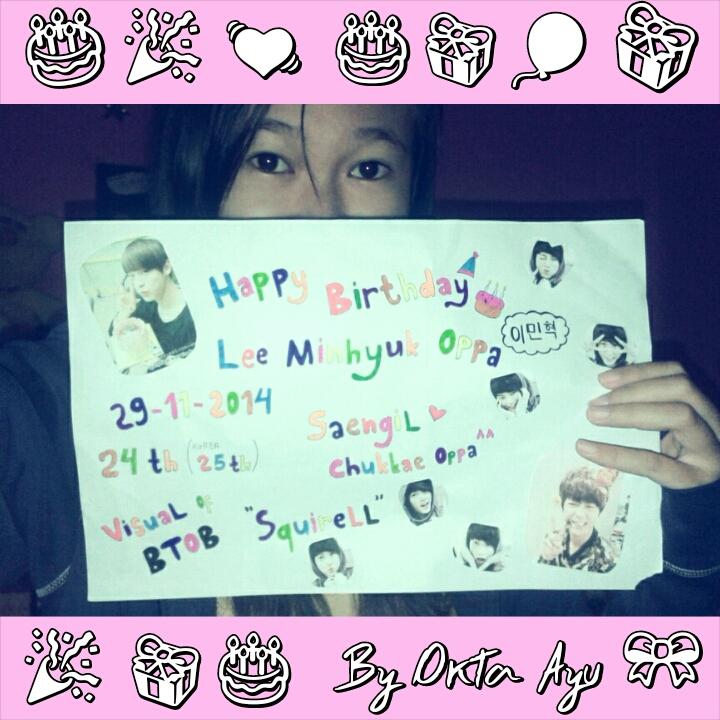 Happy Birthday
Lee Minhyuk Oppa
이민혁
29-11-2014
24th (KOREA 25th)
Saengil
Chukkae Oppa ^^
Visual of
BTOB "SquireLL"
By Okta Ayu